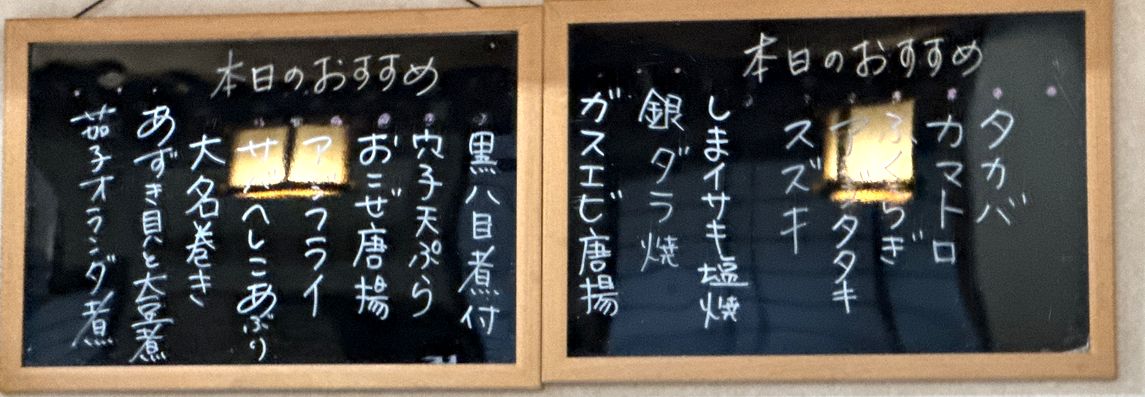 本日のおすすめ
タカバ
カマトロ
ふくらぎ
アジタタキ
スズキ
しまイサキ塩焼
銀ダラ焼
ガスエビ唐揚
本日のおすすめ
黒八目煮付
穴子天ぷら
おこぜ唐揚
アジフライ
サバへしこあぶり
大名巻き
あずき貝と大豆煮
茄子オランダ煮